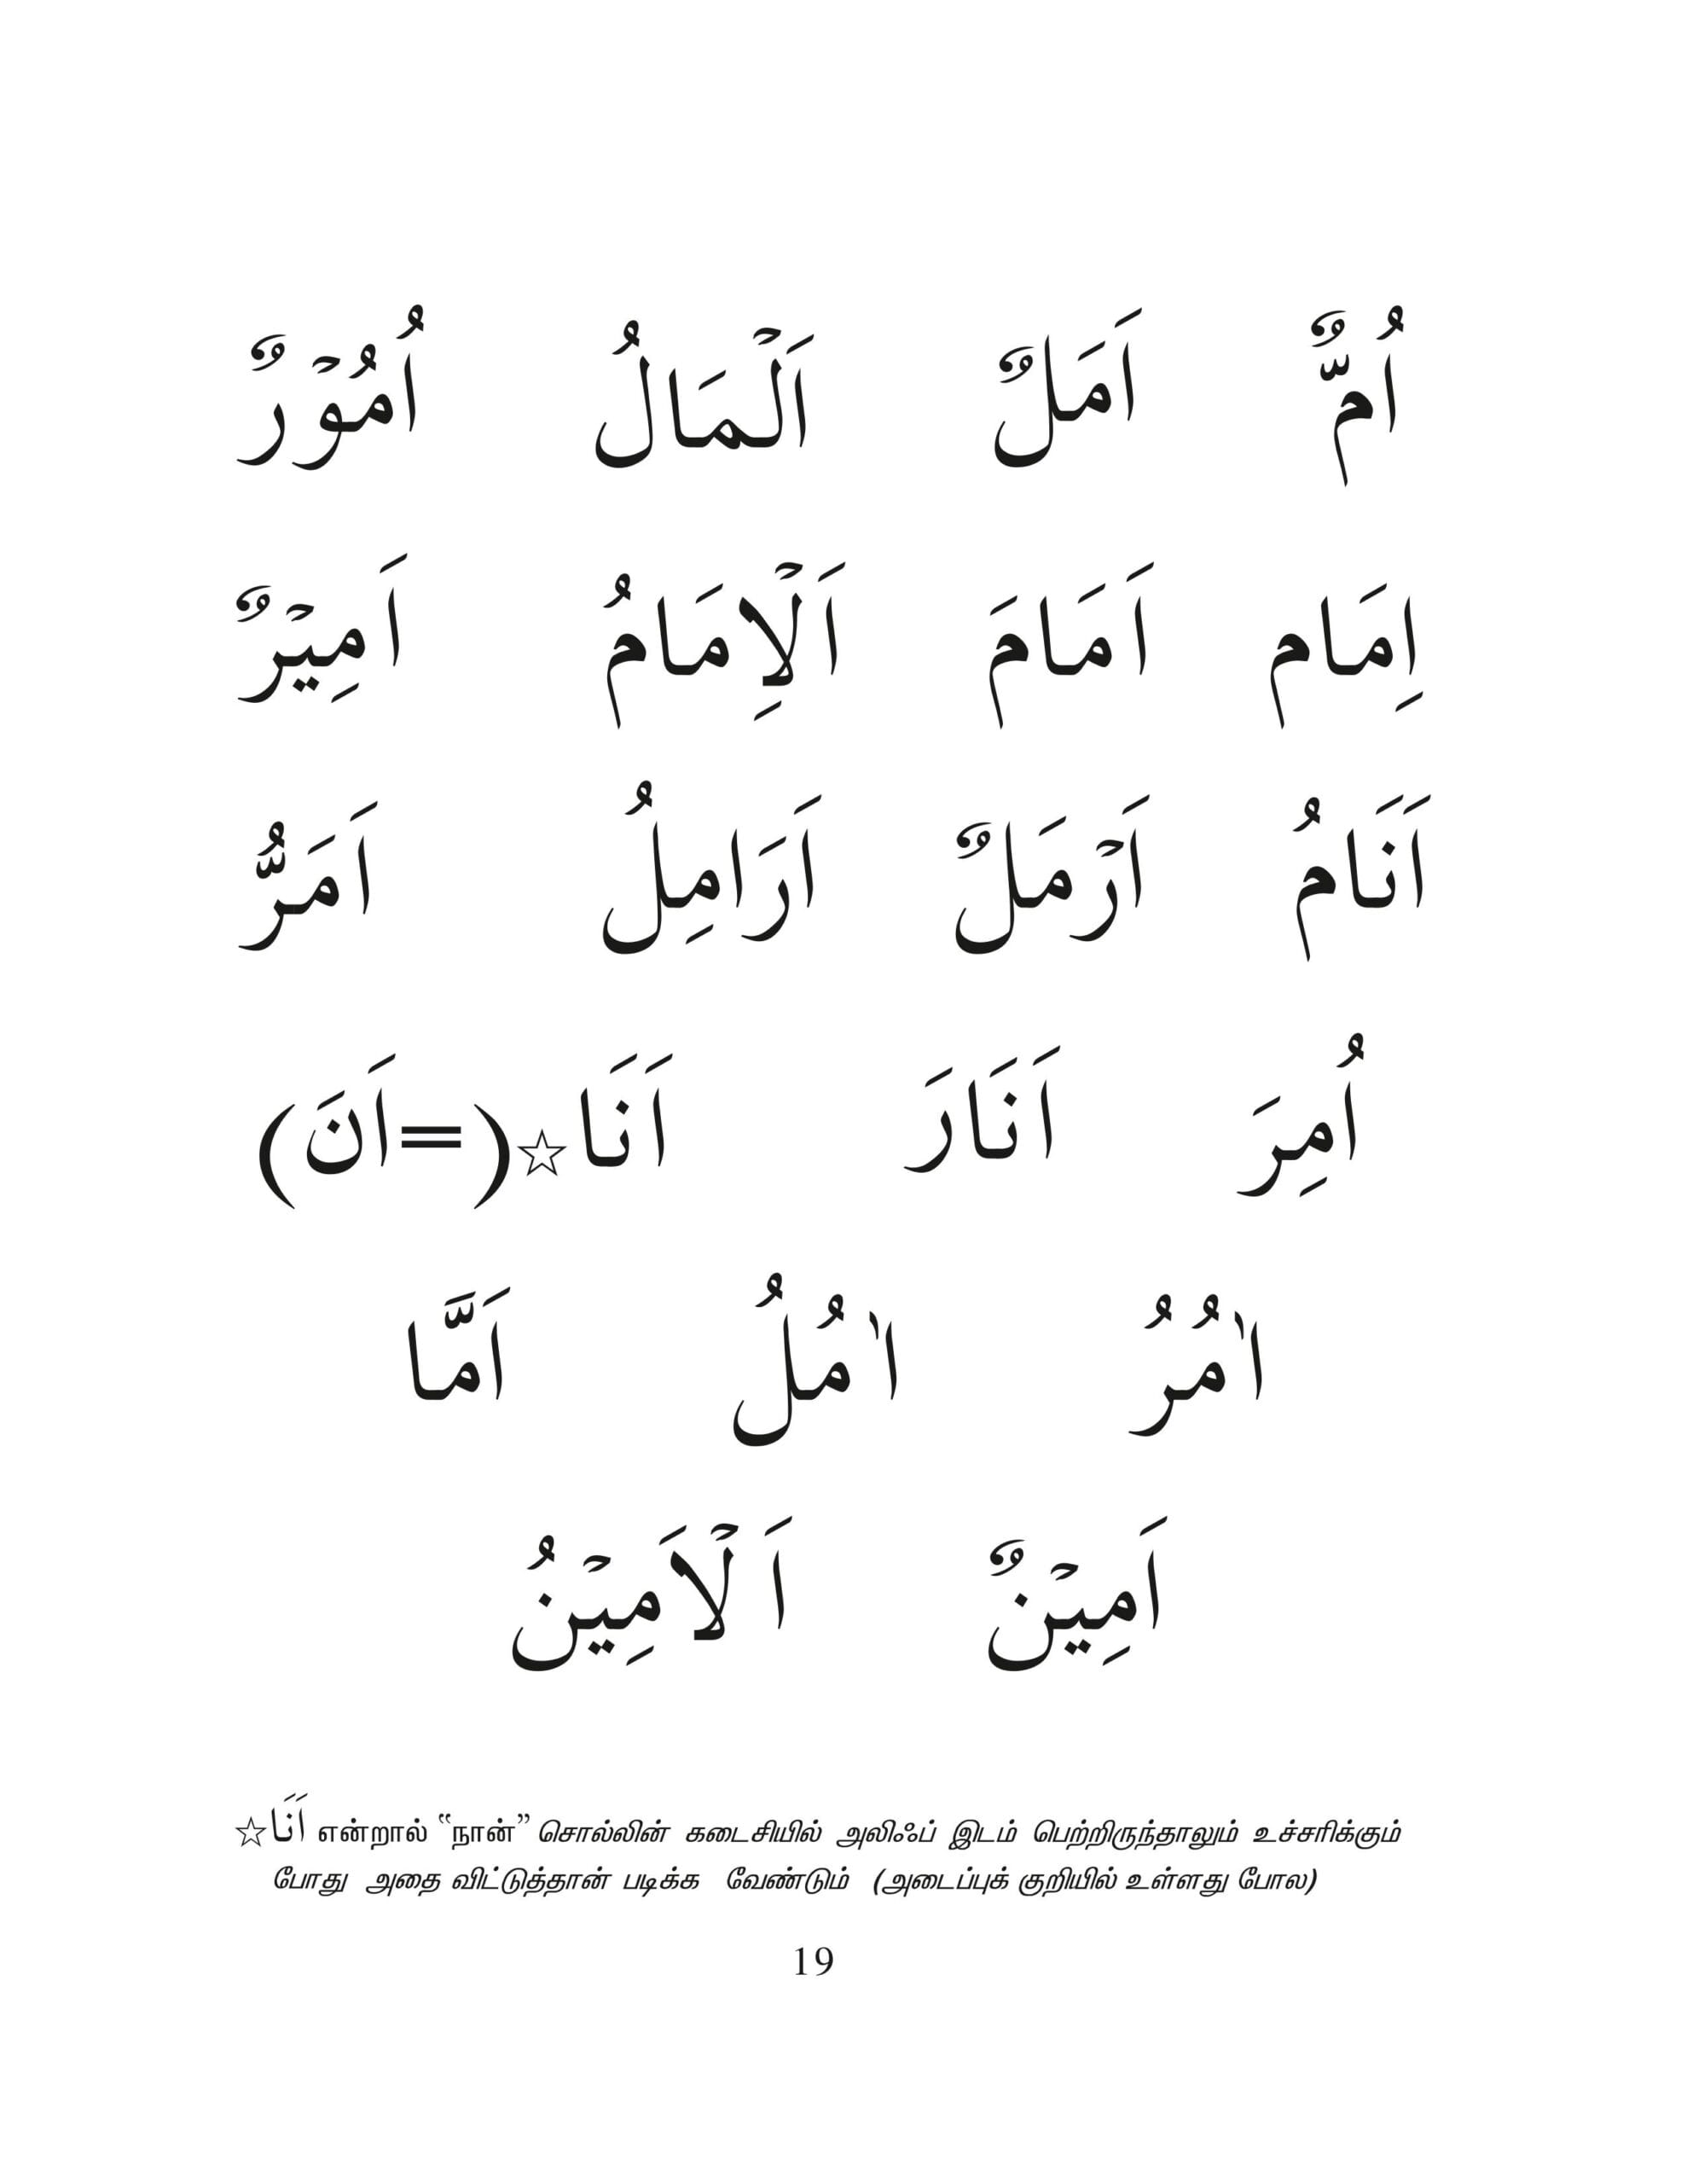 اُمٌّ اَمَلٌ اَلْمَالُ اُمُوْرٌ
اِمَام اَمَامَ اَلْاِمَامُ اَمِيْرٌ
اَنَامُ اَرْمَلٌ اَرَامِلُ اَمَرُّ
اُمِرَ اَنَارَ اَنَا☆(=اَنَ)
اٰمُرُ اٰمُلُ اَمَّا
اَمِيْنٌ اَلْاَمِيْنُ
☆اَنَا என்றால் “நான்” சொல்லின் கடைசியில் அலிஃப் இடம் பெற்றிருந்தாலும் உச்சரிக்கும்
போது அதை விட்டுத்தான் படிக்க வேண்டும் (அடைப்புக் குறியில் உள்ளது போல)
19